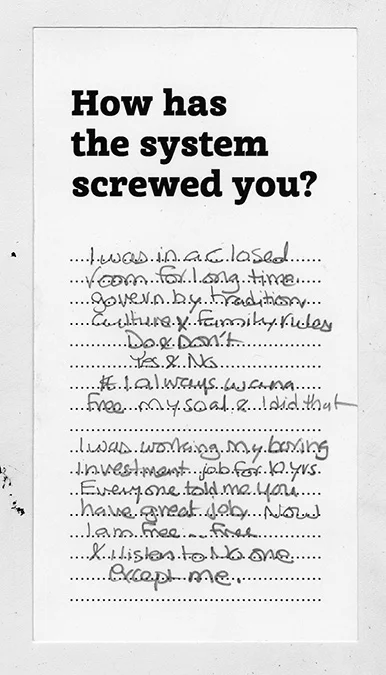 How has
the system
screwed you?
I was in a closed
room for long time
govern by tradition
culture & family rules
Do & Don't
Yes & No
I always wana
free my soal & I did that
I was working my boring
investment job for 10 yrs.
Everyone told me you
have great job. Now
I am free... free
& listen to No one
except me.